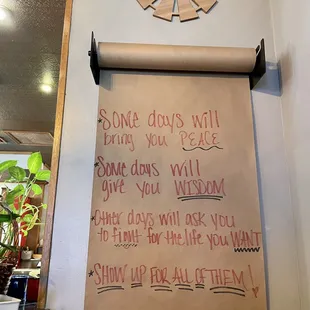 *Some days will
bring you PEACE
*Some days will
give you WISDOM
*Other days will ask you
to fight for the life you WANT
*SHOW UP FOR ALL OF THEM!